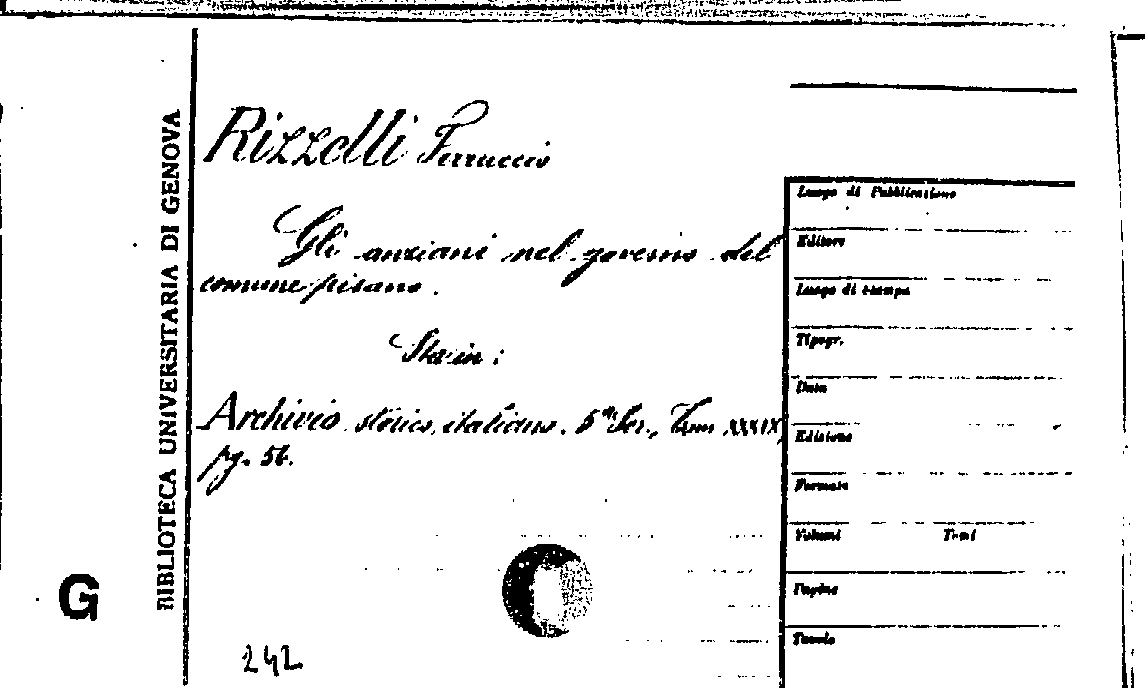 BIBLIOTECA UNIVERSITARIA DI GENOVA
G
Rizzelli Ferruccio
Gli anziani nel governo del
comune pisano.
Sta in:
Archivio storico italiano. 5ª Ser., Tom XXXIX,
pg. 56.
242
Luogo di Pubblicazione
Editore
Luogo di stampa
Tipogr.
Data
Edizione
Formato
Volumi Tomi
Pagine
Tavole